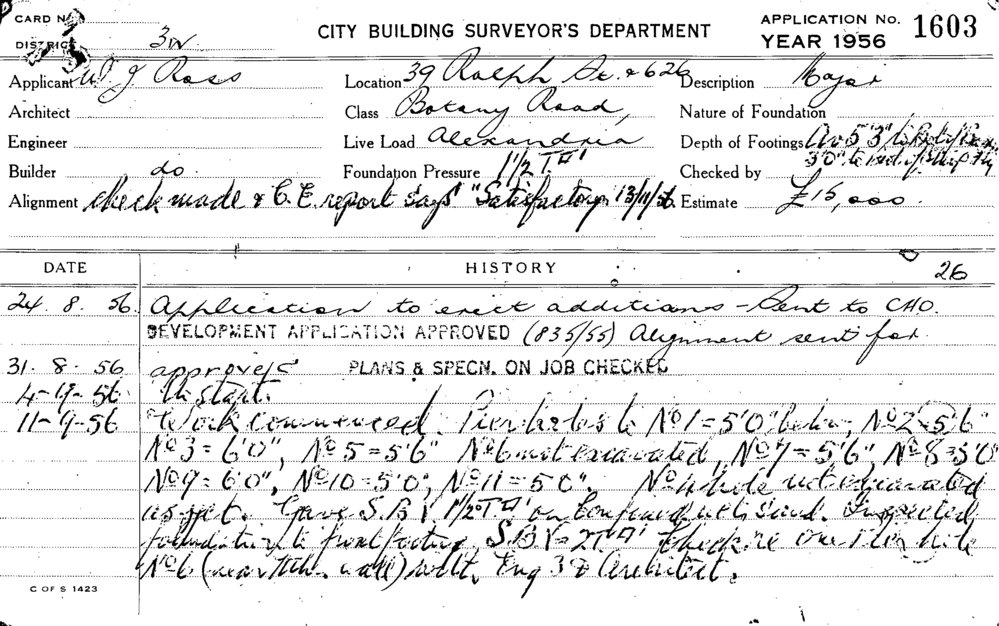 CARD No.
DISTRICT 3W.
CITY BUILDING SURVEYOR'S DEPARTMENT
APPLICATION No. 1603
YEAR 1956
Applicant W. J. Ross
Location 39 Ralph St. & 626
Description Major
Architect
Class Botany Road,
Nature of Foundation
Engineer
Live Load Alexandria
Depth of Footings Av 5'3" to
Builder do.
Foundation Pressure 1½ T.
3'0" to
Checked by
Alignment check made & C.E. report says "Satisfactory" 13/11/56
Estimate £15,000.
DATE HISTORY 26
24. 8. 56 Application to erect additions - Sent to CHO.
DEVELOPMENT APPLICATION APPROVED (835/55) Alignment sent for
31. 8. 56 approved PLANS & SPECN. ON JOB CHECKED
4-9-56 start.
11-9-56 Work commenced. Pier holes to No 1 = 5'0" below, No 2 = 5'6"
No 3 = 6'0", No 5 = 5'6" No 6 not excavated, No 7 = 5'6", No 8 = 5'0"
No 9 = 6'0", No 10 = 5'0", No 11 = 5'0". No hole not excavated
as yet. Gave S.B.V. 1½ T on confined wet sand. Inspected
foundation to front footing S.B.V = 2T check re one pier hole
No 6 (near wall) with Eng & Architect.
C OF S 1423